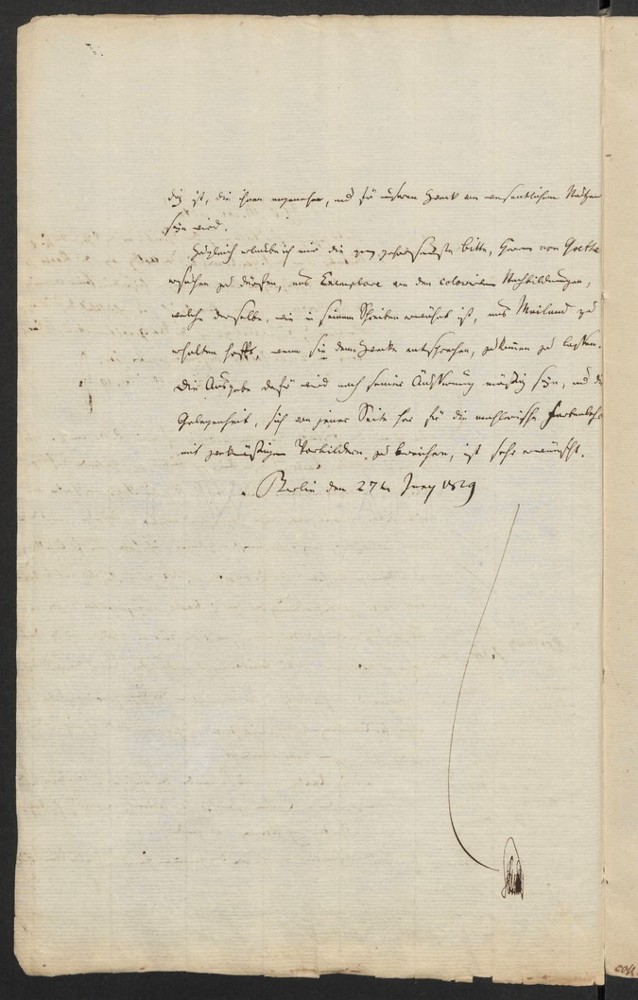 dig ist, die ihnen angenehm, und für unseren Zweck von wesentlichem Nutzen
seyn wird.
Zugleich erlaube ich mir die ganz gehorsamste Bitte, Herrn von Goethe
ersuchen zu dürfen, uns Exemplare von den colorirten Nachbildungen,
welche derselbe, wie in seinem Schreiben erwähnt ist, aus Mailand zu
erhalten hofft, wenn sie dem Zwecke entsprechen, zukommen zu lassen.
Die Ausgabe dafür wird nach seiner Äußerung mäßig seyn, und die
Gelegenheit, sich von jener Seite her für die mahlerische Farbenlehre
mit zweckmäßigen Vorbildern zu bereichern, ist sehr erwünscht.
Berlin den 27ten 1829